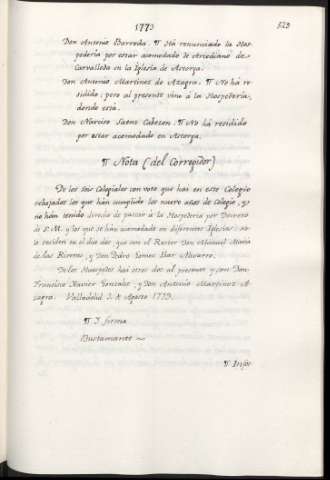 1773
Don Antonio Barreda. ¶ Há renunciado la Hos-
pederia por estar acomodado de Arcediano de
Carvalleda en la Iglesia de Astorga.
Don Antonio Martinez de Azagra. ¶ No há re-
sidido; pero al presente vino á la Hospederia,
donde está.
Don Narciso Saenz Cabezon ¶ No há residido
por estar acomodado en Astorga.
¶ Nota (del Corregidor)
De los seis Colegiales con voto que hai en este Colegio
rebajados los que hán cumplido los nueve años de Colegio, y
no hán tenido de pasar á la Hospederia por Decreto
de S.M. y los que se hán acomodado en diferentes Iglesias: so-
lo residen en el dia dos que son el Rector Don Manuel Maria
de las Rivenas, y Don Pedro Gomez Ibar Navarro.
De los Huespedes hai otros dos al presente y son Don
Francisco Xavier Gonzalez y Don Antonio Martinez A-
zagra. Valladolid de Agosto 1773.
¶ I firma
Bustamante